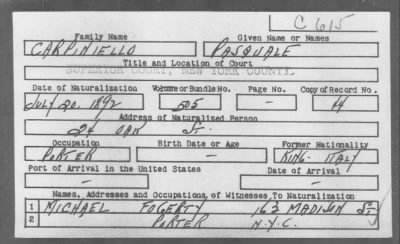 C 615
Family Name Given Name or Names
CARPINIELLO PASQUALE
Title and Location of Court
SUPERIOR COURT, NEW YORK COUNTY
Date of Naturalization Volume or Bundle No. Page No. Copy of Record No.
JULY 20. 1892 505 - 14
Address of Naturalized Person
24 OAK ST.
Occupation Birth Date or Age Former Nationality
PORTER - KING- ITALY
Port of Arrival in the United States Date of Arrival
- -
Names, Addresses and Occupations, of Witnesses, To Naturalization
1 MICHAEL FOGERTY 163 MADISON ST
2 PORTER N.Y.C.